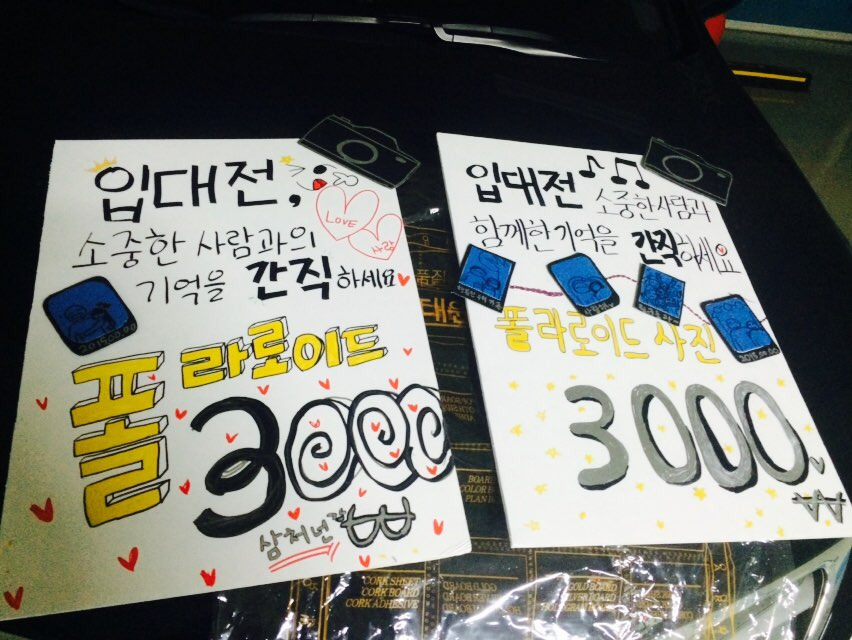 입대전,
LOVE
사랑
소중한 사람과의
기억을 간직하세요
2015.00.00
폴라로이드
3000
삼처넌
₩
입대전 소중한사람과
함께한기억을 간직하세요
2015.00.00
폴라로이드 사진
3000
₩
CORK SHEET
CORK BOARD
CORK ADHESIVE
GOLD BOARD
SILVER BOARD
HOLOGRAM BOARD